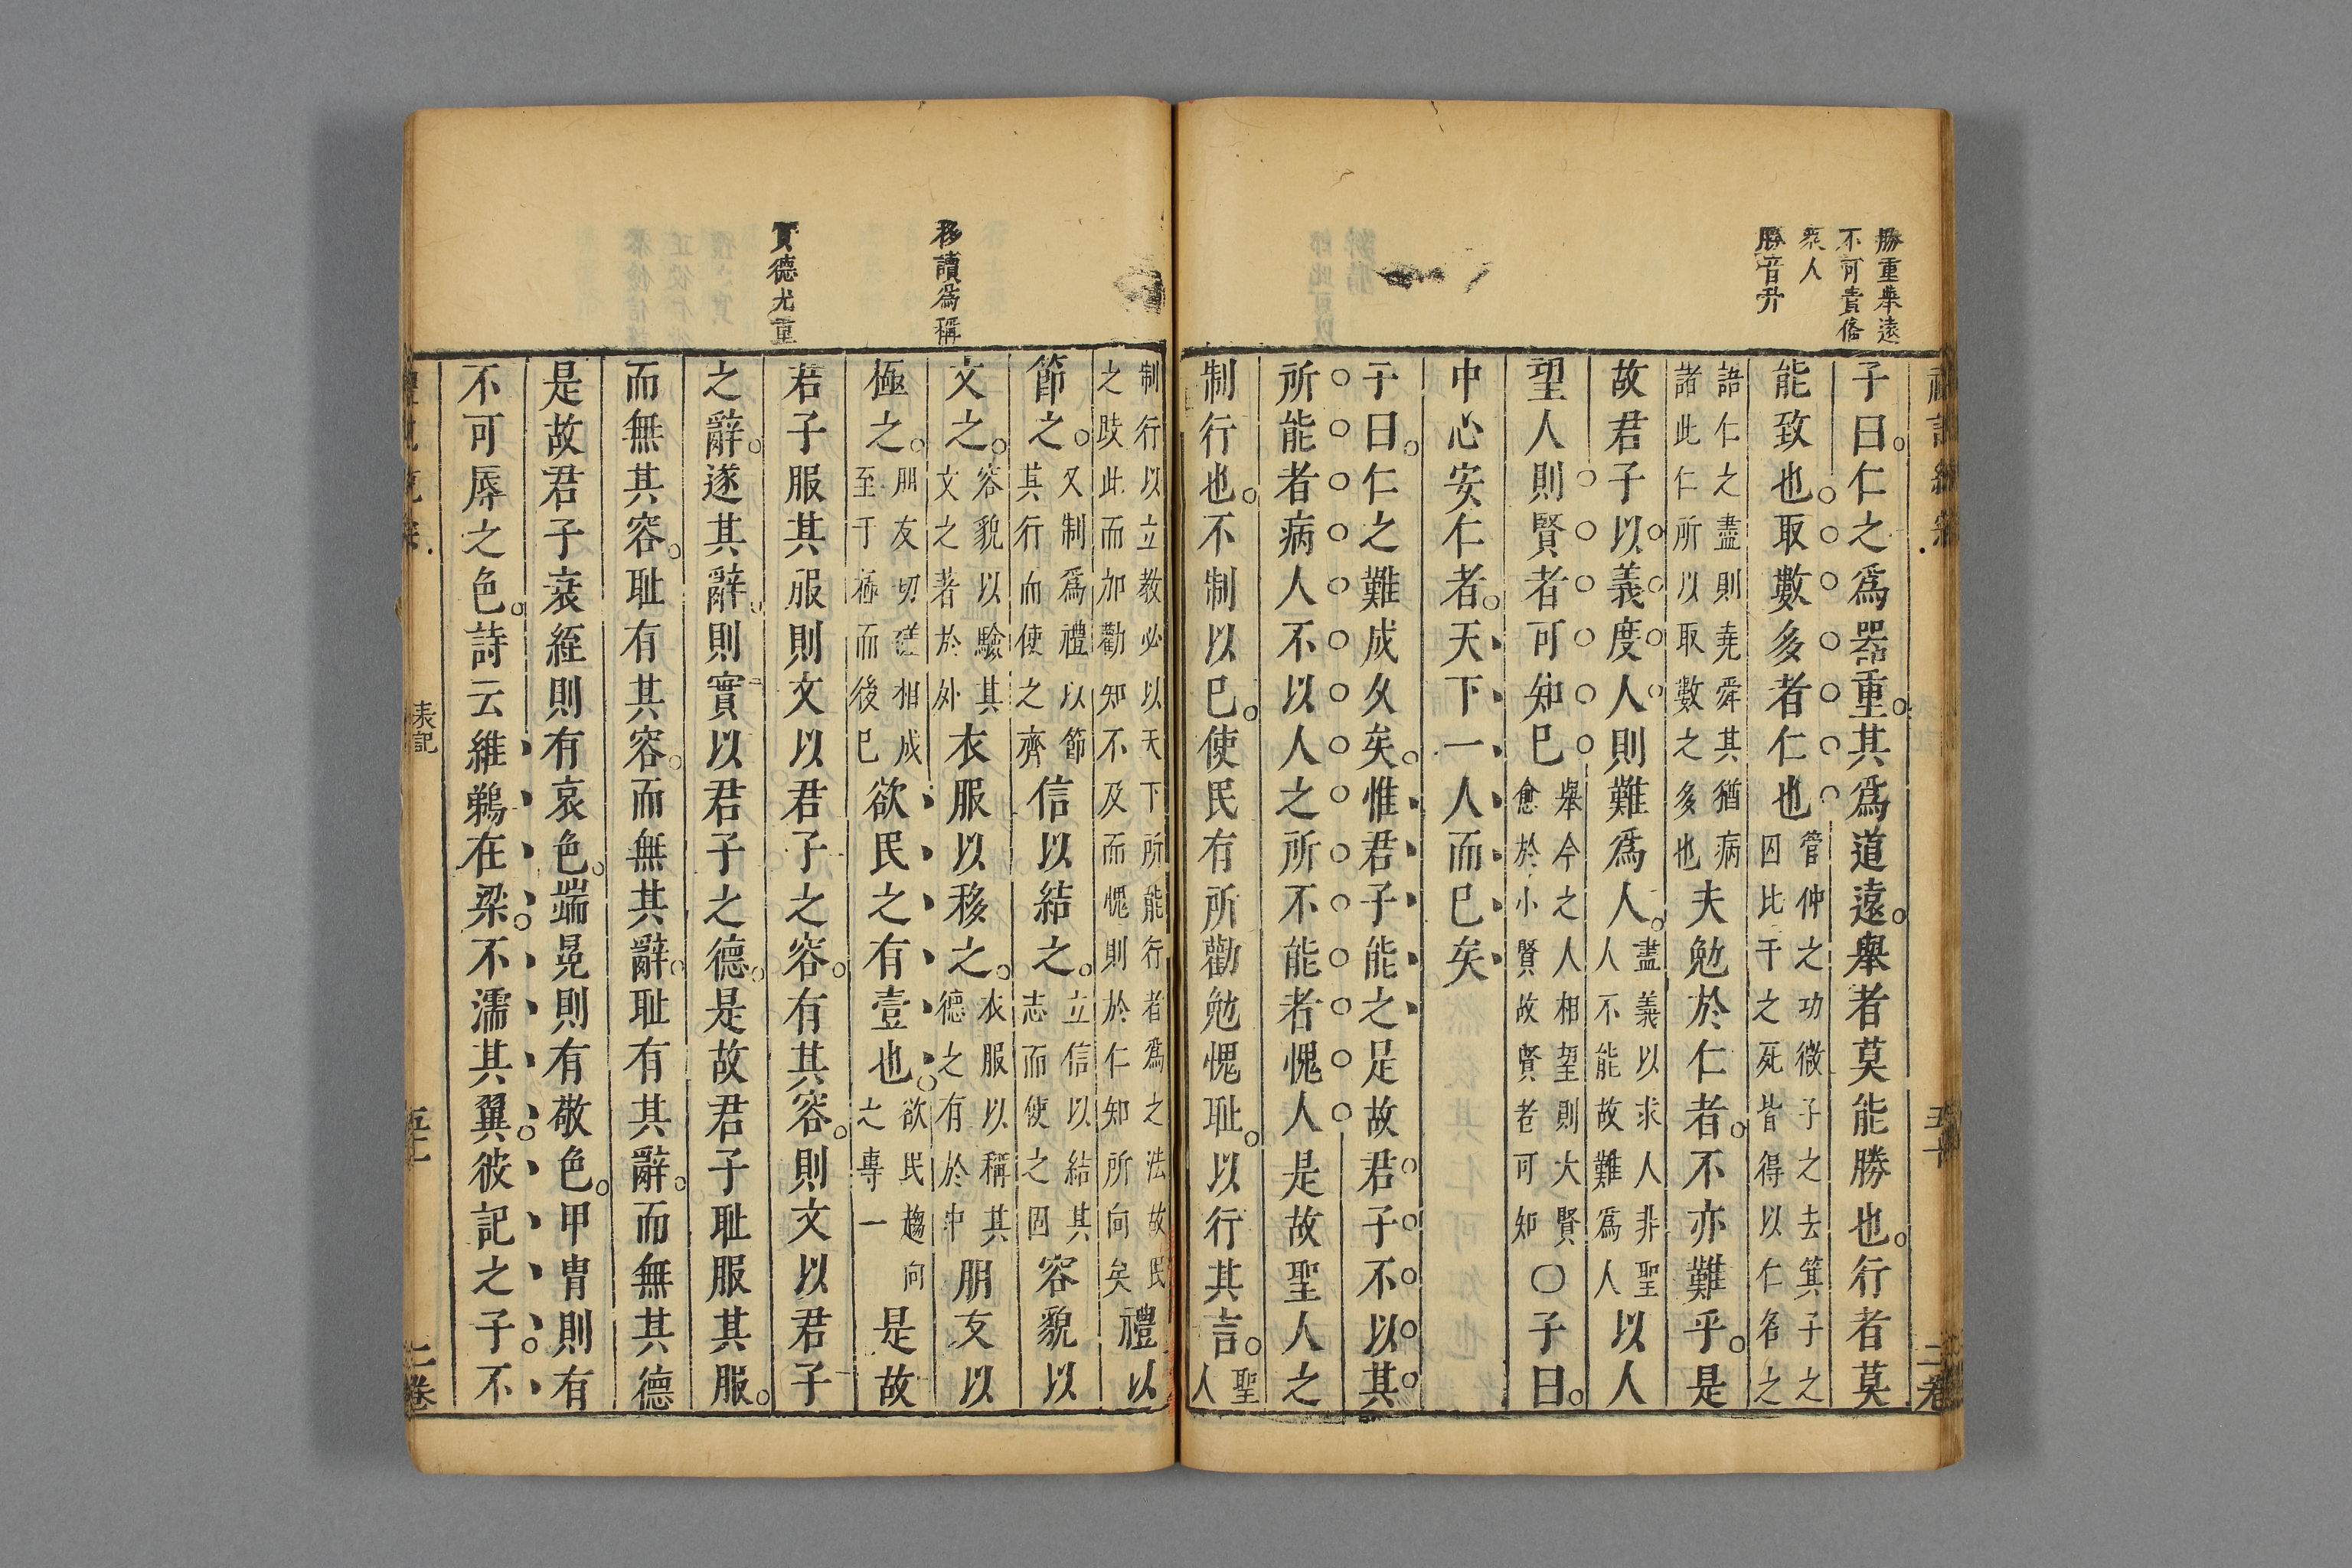 勝重舉遠
不可責俻
衆人
勝音升
子曰。仁之爲器重。其爲道遠。舉者莫能勝也。行者莫
能致也。取數多者仁也管仲之功微子之去箕子之囚比干之死皆得以仁名之
語仁之盡則堯舜其猶病諸此仁所以取數之多也夫勉於仁者。不亦難乎。是
故君子以義度人則難爲人。盡義以求人非聖人不能故難爲人以人
望人則賢者可知巳舉今之人相望則大賢愈於小賢故賢者可知○子曰。
中心安仁者。天下一人而巳矣
子曰。仁之難成久矣。惟君子能之足故君子不以其
所能者病人不以人之所不能者愧人是故聖人之
制行也。不制以巳。使民有所勸勉愧耻。以行其言。聖人
移讀爲稱
實德尤重
制行以立教必以天下所能行者爲之法故民之跂此而加勸知不及而愧則於仁知所向矣禮以
節之。又制爲禮以節其行而使之齊信以結之。立信以結其志而使之固容貌以
文之。容貌以驗其文之著於外衣服以移之。衣服以稱其德之有於中朋友以
極之。朋友切磋相成至于極而後巳欲民之有壹也。欲民趨向之專一是故
君子服其服則文以君子之容。有其容。則文以君子
之辭。遂其辭。則實以君子之德。是故君子耻服其服。
而無其容。耻有其容。而無其辭。耻有其辭。而無其德
是故君子衰絰則有哀色。端冕則有敬色。甲冑則有
不可辱之色。詩云維鵜在梁。不濡其翼。彼記之子。不
表記
二卷